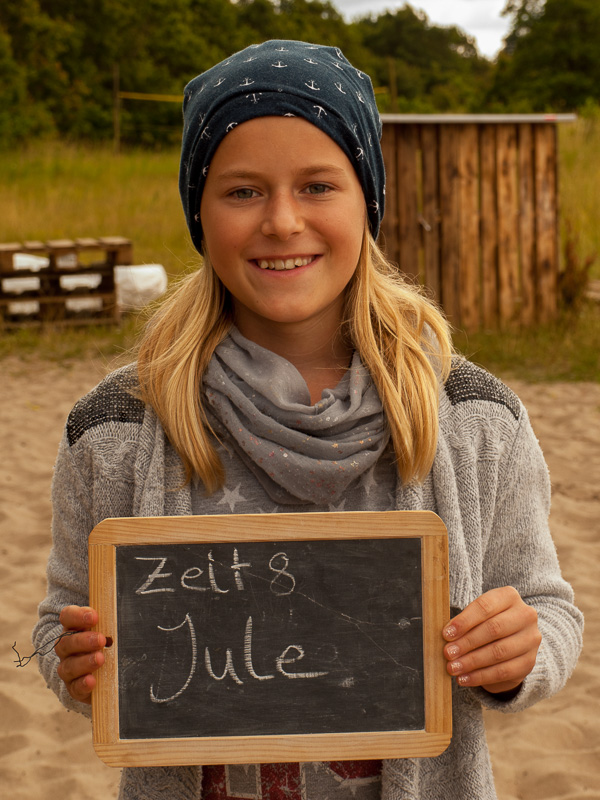 Zelt 8
Jule